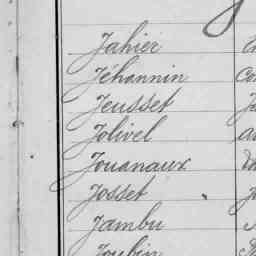 Jahier
Jéhannin
Jeusset
Jolivel
Jouanaux
Josset
Jambu
Joubin